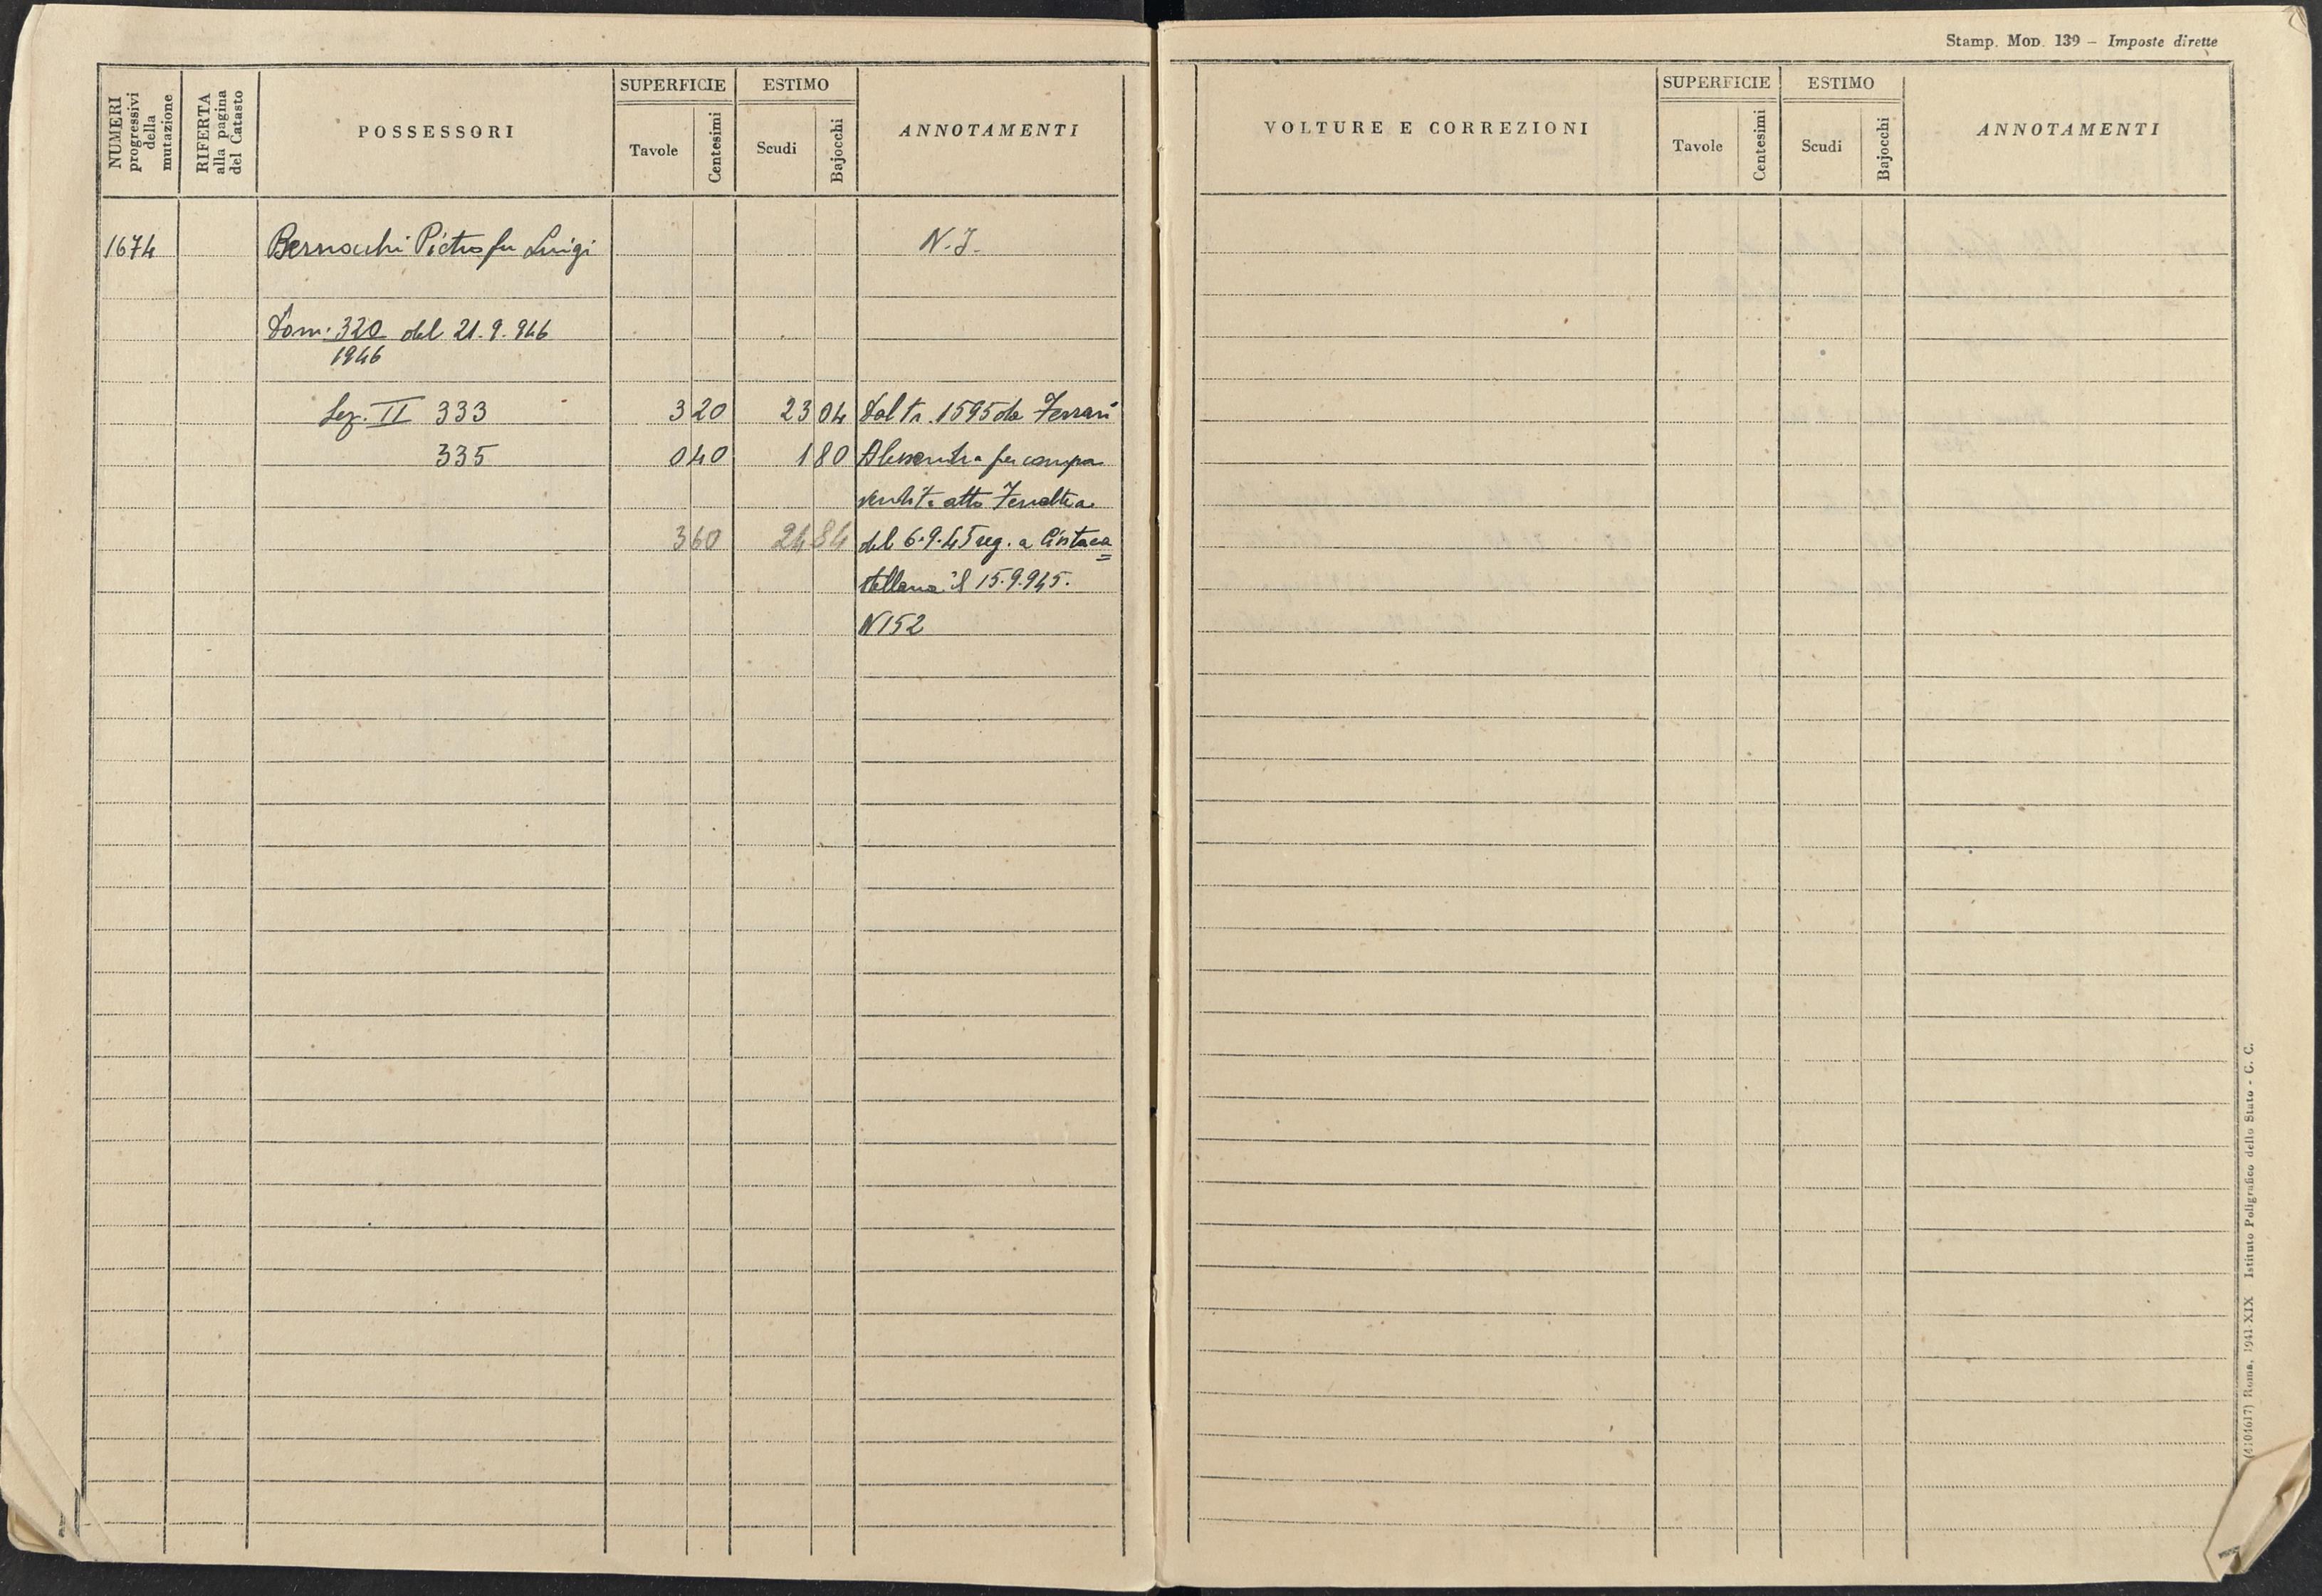 Stamp. Mod. 139 — Imposte dirette
NUMERI progressivi della mutazione
RIFERTA alla pagina del Catasto
POSSESSORI
SUPERFICIE
Tavole
Centesimi
ESTIMO
Scudi
Bajocchi
ANNOTAMENTI
VOLTURE E CORREZIONI
SUPERFICIE
Tavole
Centesimi
ESTIMO
Scudi
Bajocchi
ANNOTAMENTI
1674 Bernocchi Pietro fu Luigi
Dom. 320 del 21.9.946
1946
Sez. II 333 3 20 23 04 Dal tr. 1595 da Ferrari
335 0 40 1 80 Alessandra per compra
vendita atto
3 60 24 84 del 6.9.45 reg. a Civitaca=
stellana il 15.9.945.
N 152
(4104617) Roma, 1941-XIX Istituto Poligrafico dello Stato - C. C.